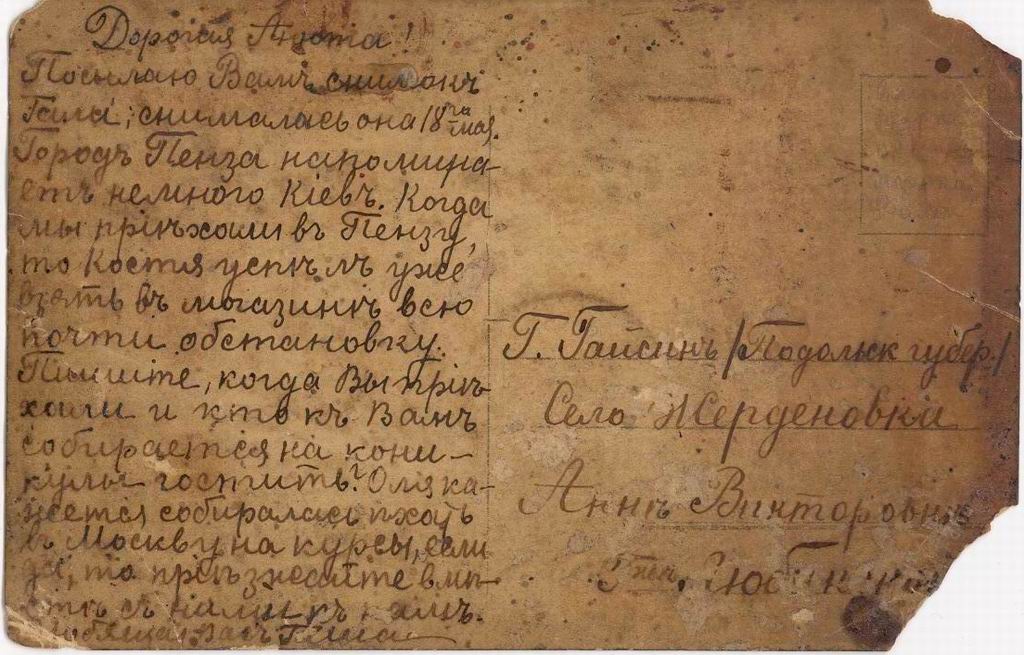 Дорогая Анюта!
Посылаю Вамъ снимокъ
Гали; снималась она 18го мая.
Городъ Пенза напомина-
етъ немного Кіевъ. Когда
мы пріѣхали въ Пензу,
то Костя успѣлъ уже
взять въ магазинѣ всю
почти обстановку.
Пишите, когда Вы пріѣ-
хали и кто къ Вамъ
собирается на кони-
кулы гостить? Оля ка-
жется собиралась ѣхать
въ Москву на курсы, если
да, то пріѣзжайте вмѣ-
стѣ съ нами къ намъ.
Любящая Васъ
Г. Гайсинъ /Подольск губер./
Село Жерденовка
Аннѣ Викторовнѣ